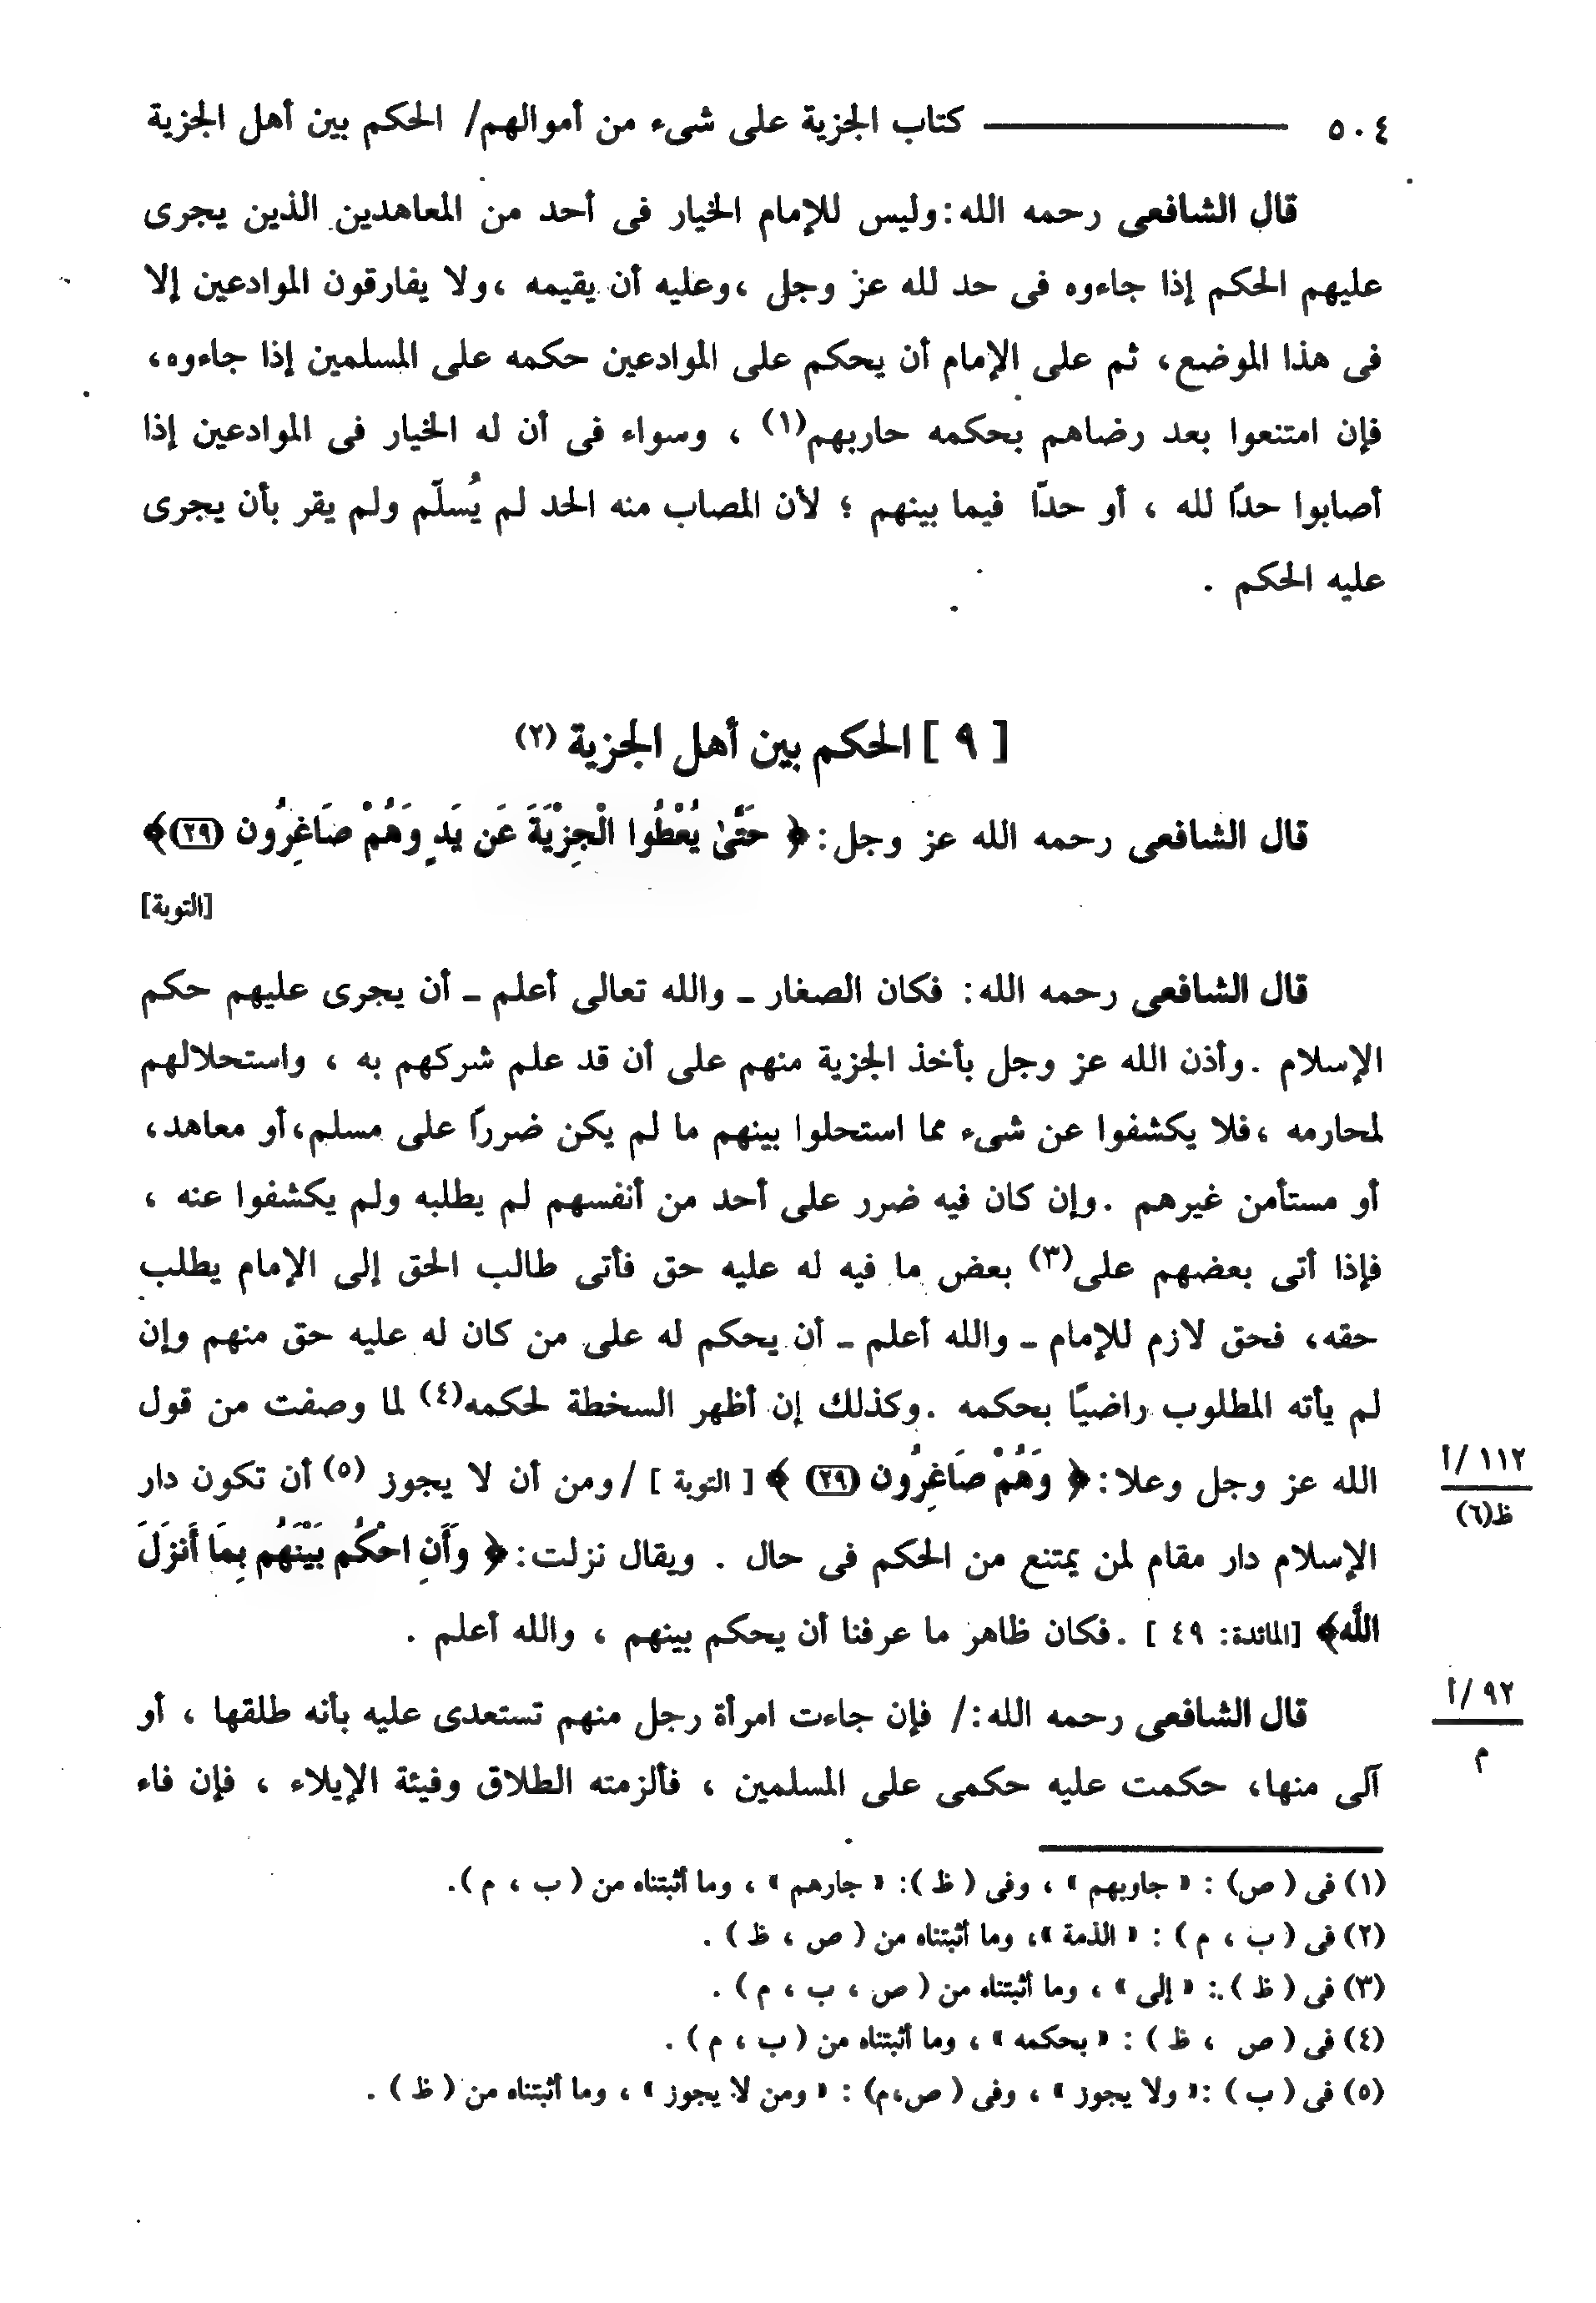 ٥٠٤ ـــــــــ كتاب الجزية على شىء من أموالهم/ الحكم بين أهل الجزية
قال الشافعى رحمه الله:وليس للإمام الخيار فى أحد من المعاهدين الذين يجرى
عليهم الحكم إذا جاءوه فى حد لله عز وجل ،وعليه أن يقيمه ،ولا يفارقون الموادعين إلا
فى هذا الموضع، ثم على الإمام أن يحكم على الموادعين حكمه على المسلمين إذا جاءوه،
فإن امتنعوا بعد رضاهم بحكمه حاربهم(١) ، وسواء فى أن له الخيار فى الموادعين إذا
أصابوا حدًا لله ، أو حدّا فيما بينهم ؛ لأن المصاب منه الحد لم يُسلّم ولم يقر بأن يجرى
عليه الحكم .
[ ٩ ] الحكم بين أهل الجزية (٢)
قال الشافعى رحمه الله عز وجل:﴿ حَتَّىٰ يُعْطُوا الْجِزْيَةَ عَن يَدٍ وَهُمْ صَاغِرُون (٢٩)﴾
[التوبة]
قال الشافعى رحمه الله: فكان الصغار ـ والله تعالى أعلم ـ أن يجرى عليهم حكم
الإسلام .وأذن الله عز وجل بأخذ الجزية منهم على أن قد علم شركهم به ، واستحلالهم
لمحارمه ،فلا يكشفوا عن شىء مما استحلوا بينهم ما لم يكن ضررًا على مسلم،أو معاهد،
أو مستأمن غيرهم .وإن كان فيه ضرر على أحد من أنفسهم لم يطلبه ولم يكشفوا عنه ،
فإذا أتى بعضهم على(٣) بعض ما فيه له عليه حق فأتى طالب الحق إلى الإمام يطلب
حقه، فحق لازم للإمام ـ والله أعلم ـ أن يحكم له على من كان له عليه حق منهم وإن
لم يأته المطلوب راضيًا بحكمه .وكذلك إن أظهر السخطة لحكمه(٤) لما وصفت من قول
الله عز وجل وعلا:﴿ وَهُمْ صَاغِرُون (٢٩) ﴾ [ التوبة ] /ومن أن لا يجوز (٥) أن تكون دار
١١٢ /أ
ظ(٦)
الإسلام دار مقام لمن يمتنع من الحكم فى حال . ويقال نزلت:﴿ وَأَنِ احْكُم بَيْنَهُم بِمَا أَنزَلَ
اللَّه﴾ [المائدة: ٤٩ ] .فكان ظاهر ما عرفنا أن يحكم بينهم ، والله أعلم .
قال الشافعى رحمه الله:/ فإن جاءت امرأة رجل منهم تستعدى عليه بأنه طلقها ، أو
٩٢ /أ
م
آلى منها، حكمت عليه حكمى على المسلمين ، فألزمته الطلاق وفيئة الإيلاء ، فإن فاء
(١) فى ( ص) : « جاوبهم » ، وفى ( ظ ): « جارهم » ، وما أثبتناه من ( ب ، م ).
(٢) فى ( ب ، م ) : « الذمة »، وما أثبتناه من ( ص ، ظ ) .
(٣) فى ( ظ ).: « إلى » ، وما أثبتناه من ( ص ، ب ، م ) .
(٤) فى ( ص ، ظ ) : « بحكمه » ، وما أثبتناه من ( ب ، م ) .
(٥) فى ( ب ) :« ولا يجوز » ، وفى ( ص،م) : « ومن لا يجوز » ، وما أثبتناه من ( ظ ) .